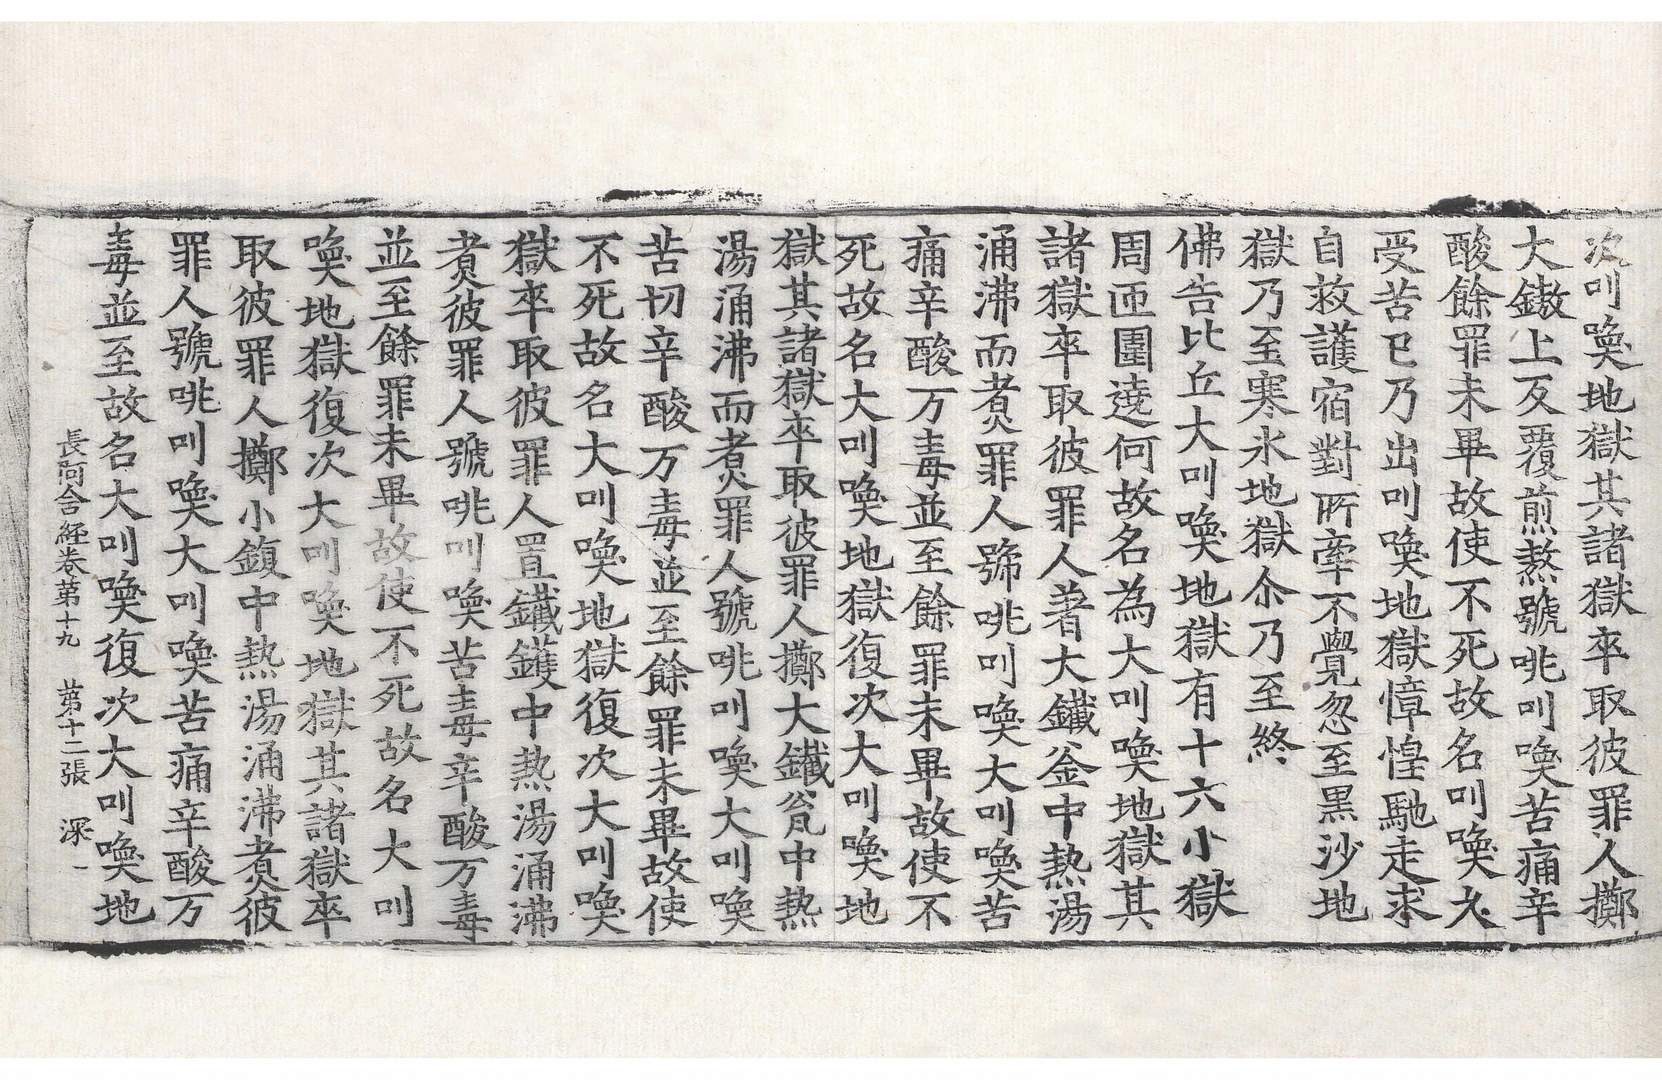 次叫喚地獄其諸獄卒取彼罪人擲
大鏾上反覆煎熬號咷叫喚苦痛辛
酸餘罪未畢故使不死故名叫喚久
受苦已乃出叫喚地獄慞惶馳走求
自救護宿對所牽不覺忽至黑沙地
獄乃至寒氷地獄尒乃至終
佛告比丘大叫喚地獄有十六小獄
周匝圍遶何故名為大叫喚地獄其
諸獄卒取彼罪人著大鐵釜中熱湯
涌沸而煑罪人號咷叫喚大叫喚苦
痛辛酸万毒並至餘罪未畢故使不
死故名大叫喚地獄復次大叫喚地
獄其諸獄卒取彼罪人擲大鐵瓮中熱
湯涌沸而煑罪人號咷叫喚大叫喚
苦切辛酸万毒並至餘罪未畢故使
不死故名大叫喚地獄復次大叫喚
獄卒取彼罪人置鐵鑊中熱湯涌沸
煑彼罪人號咷叫喚苦毒辛酸万毒
並至餘罪未畢故使不死故名大叫
喚地獄復次大叫喚地獄其諸獄卒
取彼罪人擲小鍑中熱湯涌沸煑彼
罪人號咷叫喚大叫喚苦痛辛酸万
毒並至故名大叫喚復次大叫喚地
長阿含經卷第十九 第十二張 深一